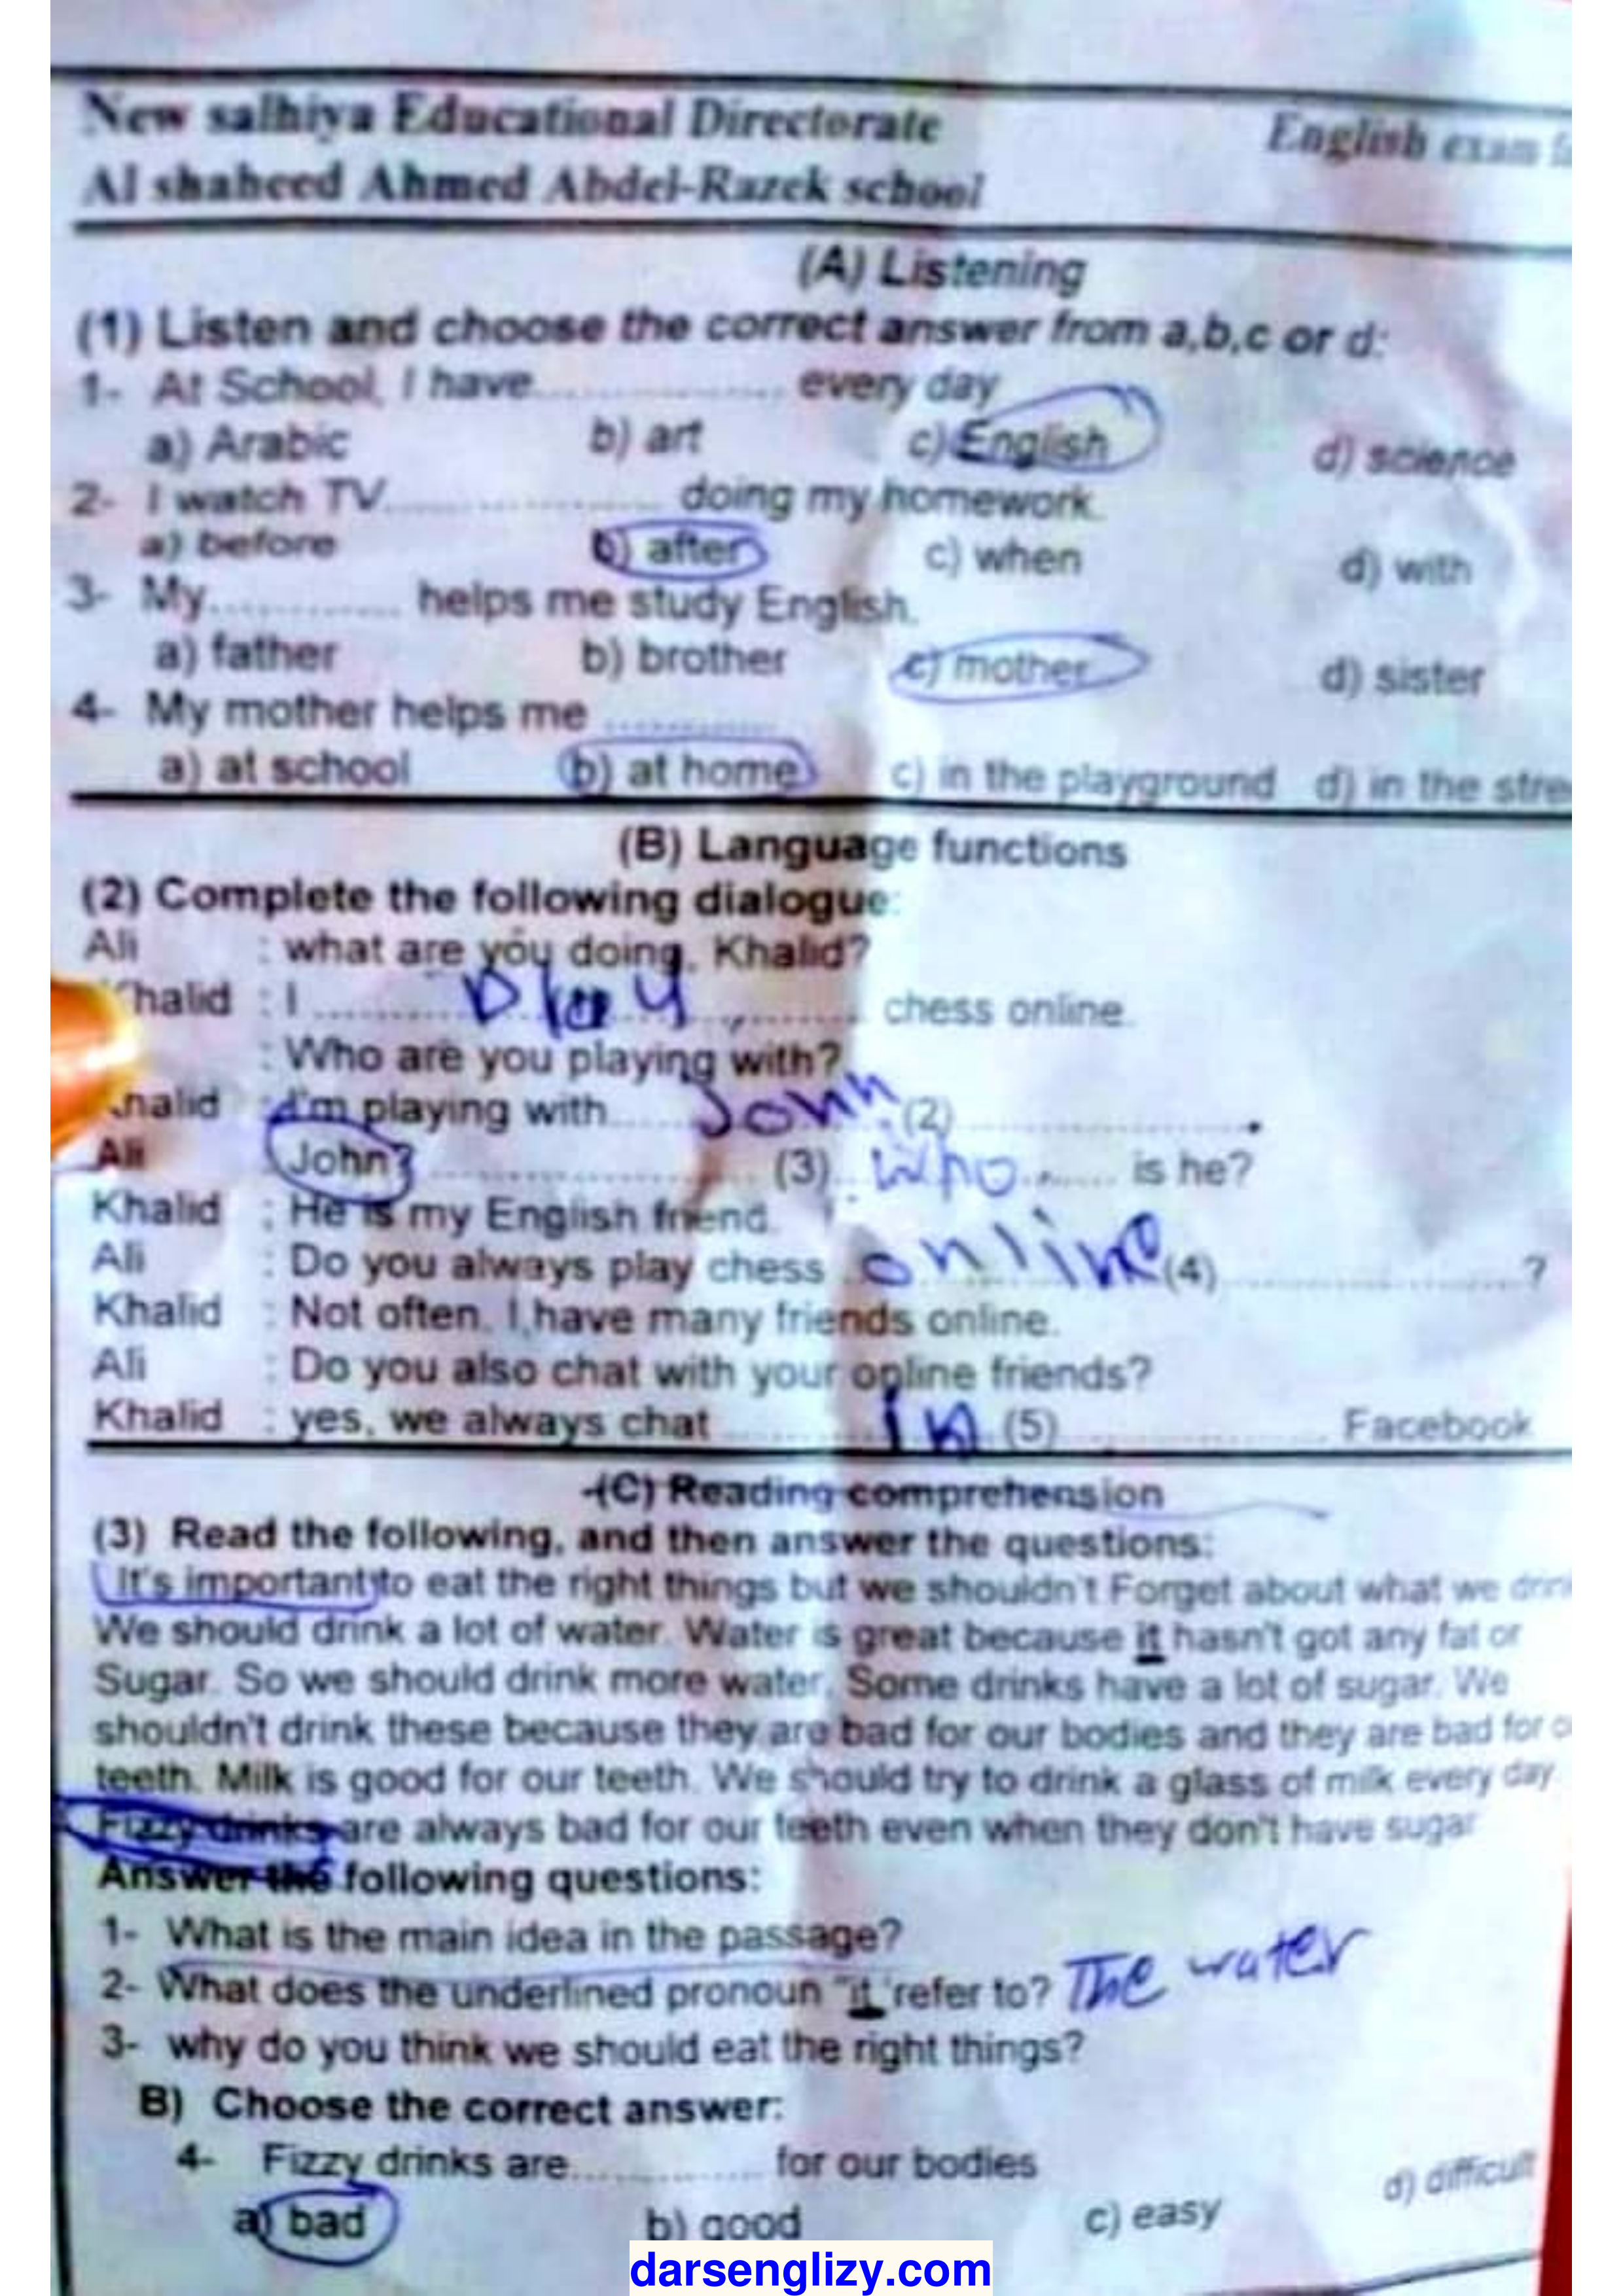 New salhiya Educational Directorate
English exam
Al shaheed Ahmed Abdel-Razek school
(A) Listening
(1) Listen and choose the correct answer from a,b,c or d:
1- At School, I have.................... every day
a) Arabic b) art c) English d) science
2- I watch TV.................... doing my homework.
a) before b) after c) when d) with
3- My.............. helps me study English.
a) father b) brother c) mother d) sister
4- My mother helps me ..............
a) at school b) at home c) in the playground d) in the stre
(B) Language functions
(2) Complete the following dialogue:
Ali : what are you doing, Khalid?
Khalid : I .......... play .......... chess online.
: Who are you playing with?
Khalid : I'm playing with...... John (2)....................
Ali : John? .................... (3) .. who ...... is he?
Khalid : He is my English friend.
Ali : Do you always play chess .. online (4)....................?
Khalid : Not often. I have many friends online.
Ali : Do you also chat with your online friends?
Khalid : yes, we always chat .......... In (5) .................... Facebook
(C) Reading comprehension
(3) Read the following, and then answer the questions:
It's important to eat the right things but we shouldn't Forget about what we drin
We should drink a lot of water. Water is great because it hasn't got any fat or
Sugar. So we should drink more water. Some drinks have a lot of sugar. We
shouldn't drink these because they are bad for our bodies and they are bad for o
teeth. Milk is good for our teeth. We should try to drink a glass of milk every day.
Fizzy drinks are always bad for our teeth even when they don't have sugar
Answer the following questions:
1- What is the main idea in the passage?
2- What does the underlined pronoun "it" refer to? The water
3- why do you think we should eat the right things?
B) Choose the correct answer:
4- Fizzy drinks are.................... for our bodies
a) bad b) good c) easy d) difficult
darsenglizy.com